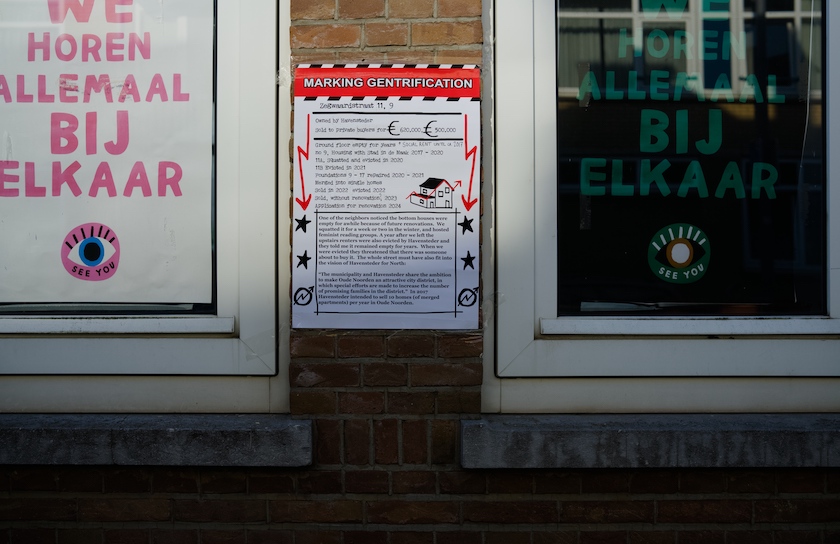 WE
HOREN
ALLEMAAL
BIJ
ELKAAR
SEE YOU
MARKING GENTRIFICATION
Zegwaardstraat 11, 9
Owned by Havensteder
Sold to private buyers for € 620,000 € 500,000
Ground floor empty for years * SOCIAL RENT UNTIL
no 9, Housing with Stad in de Maak 2017 - 2020
11a, Squatted and evicted in 2020
11b Evicted in 2021
Foundations 9 - 17 repaired 2020 - 2021
Merged into single homes
Sold in 2022 evicted 2022
Sold, without renovation, 2023
Application for renovation 2024
One of the neighbors noticed the bottom houses were
empty for awhile because of future renovations. We
squatted it for a week or two in the winter, and hosted
feminist reading groups. A year after we left the
upstairs renters were also evicted by Havensteder and
they told me it remained empty for years. When we
were evicted they threatened that there was someone
about to buy it. The whole street must have also fit into
the vision of Havensteder for North:
"The municipality and Havensteder share the ambition
to make Oude Noorden an attractive city district, in
which special efforts are made to increase the number
of promising families in the district." In 2017
Havensteder intended to sell 10 homes (of merged
apartments) per year in Oude Noorden.
WE
HOREN
ALLEMAAL
BIJ
ELKAAR
SEE YOU